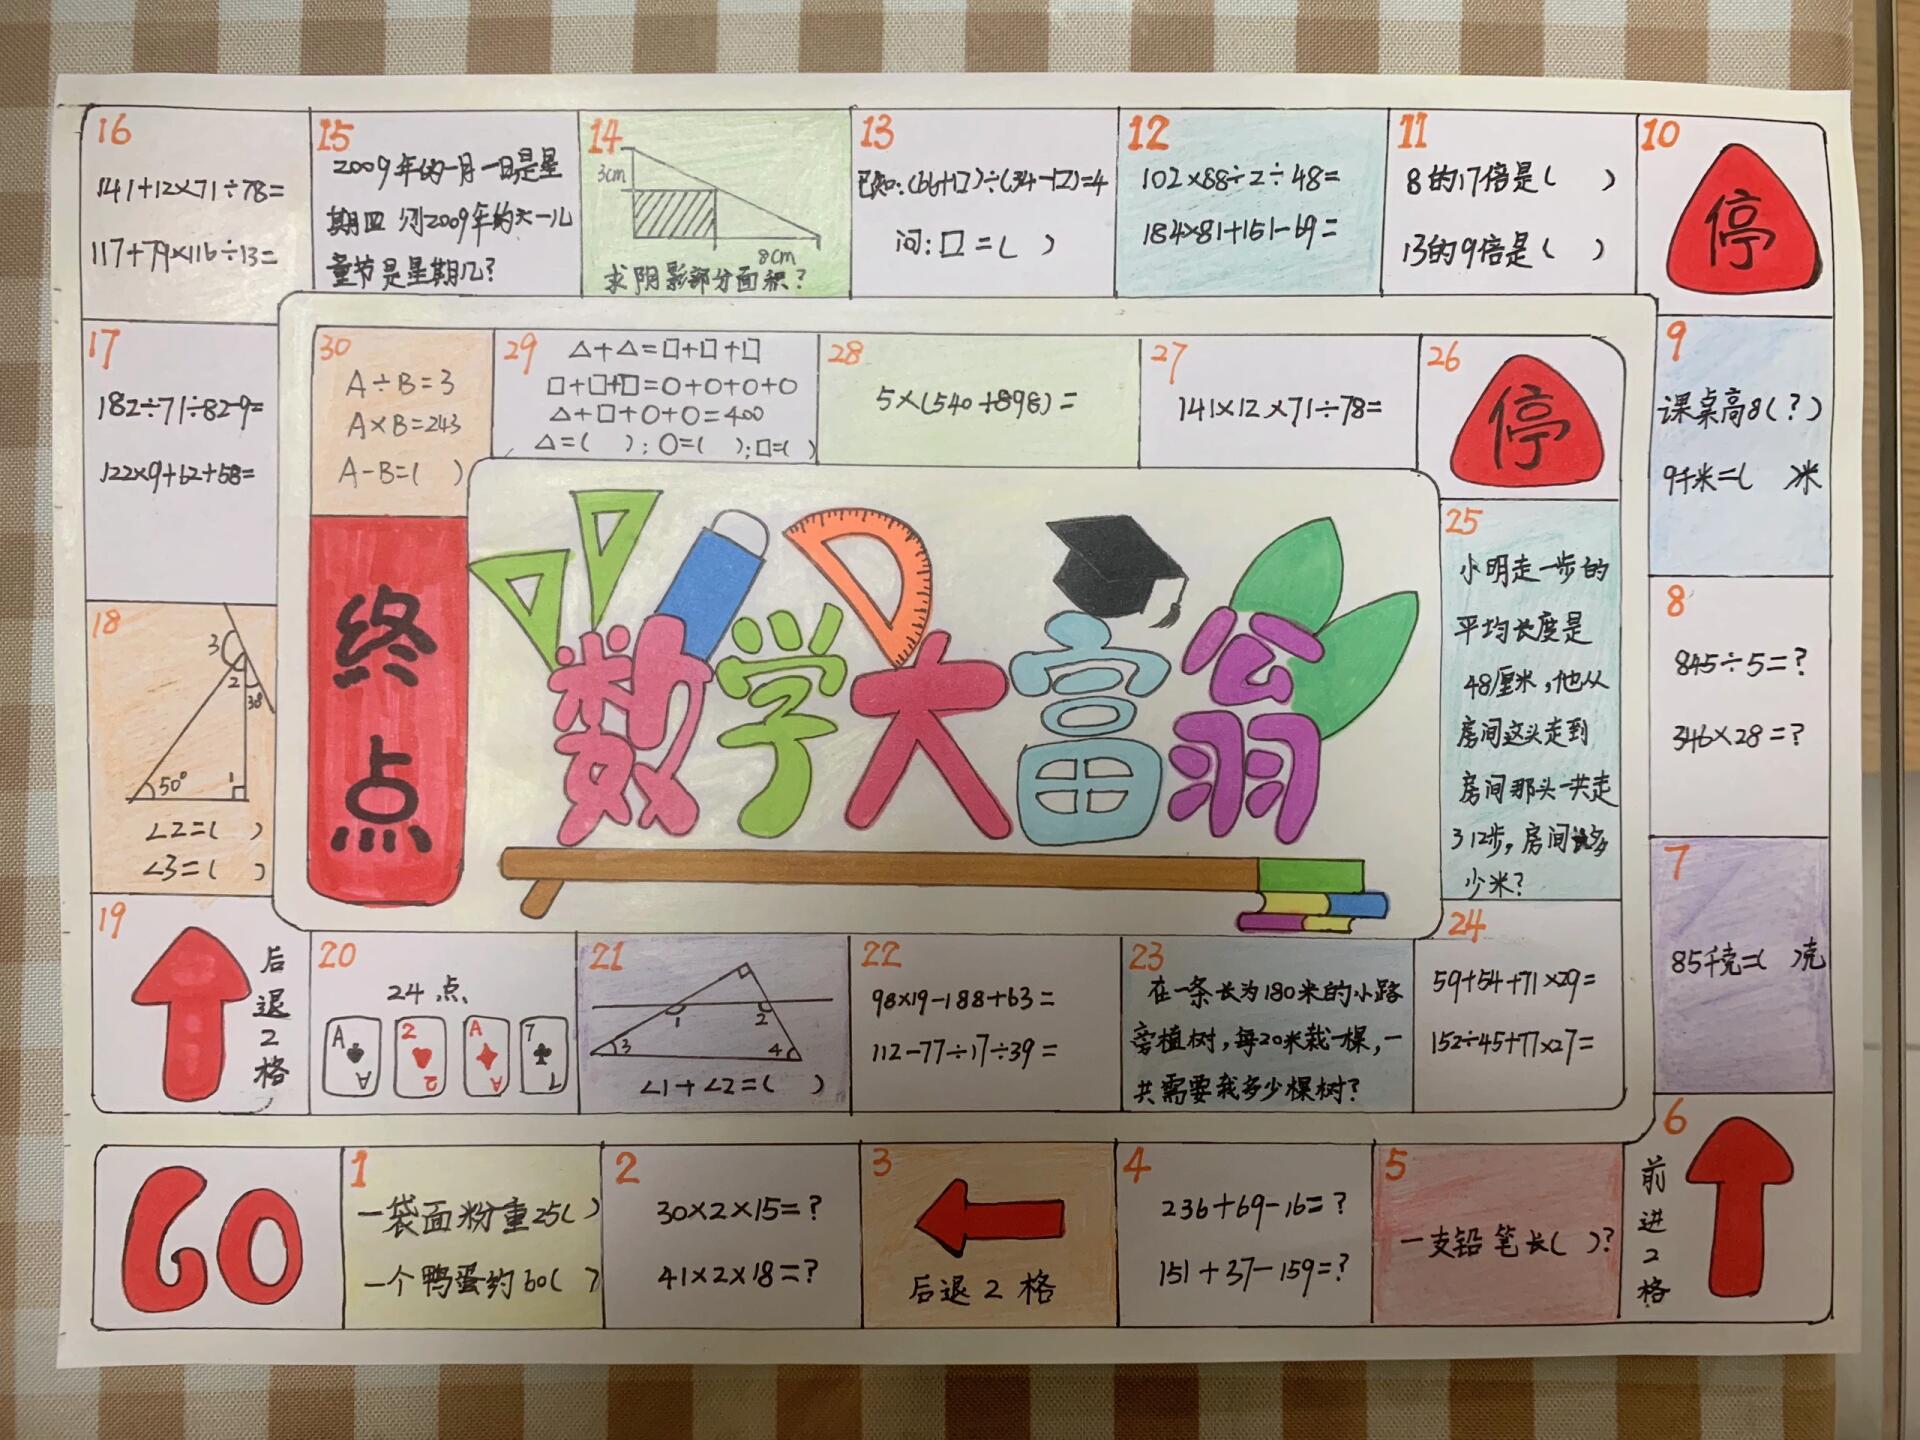 数学大富翁
GO
1
一袋面粉重25( )
一个鸭蛋约60( )
2
30×2×15=?
41×2×18=?
3
后退2格
4
236+69-16=?
151+37-159=?
5
一支铅笔长( )?
6
前进2格
7
85千克=( )克
8
845÷5=?
346×28=?
9
课桌高8(?)
9千米=( )米
10
停
11
8的17倍是( )
13的9倍是( )
12
102×88÷2÷48=
184×81+151-69=
13
已知:(66+□)÷(34-□)=4
问:□=( )
14
3cm
8cm
求阴影部分面积?
15
2009年的一月一日是星
期四 则2009年的六一儿
童节是星期几?
16
141+12×71÷78=
117+79×116÷13=
17
182÷71÷82-9=
122×9+62+58=
18
3
2
38
50°
1
∠2=( )
∠3=( )
19
后退2格
20
24点
A A
2 2
A A
7 7
21
1
2
3
4
∠1+∠2=( )
22
98×19-188+63=
112-77÷17÷39=
23
在一条长为180米的小路
旁植树,每20米栽一棵,一
共需要栽多少棵树?
24
59+54+71×29=
152÷45+77×27=
25
小明走一步的
平均长度是
48厘米,他从
房间这头走到
房间那头一共走
312步,房间长多
少米?
26
停
27
141×12×71÷78=
28
5×(540+898)=
29
△+△=□+□+□
□+□+□=○+○+○+○
△+□+○+○=400
△=( );○=( );□=( )
30
A÷B=3
A×B=243
A-B=( )
终点